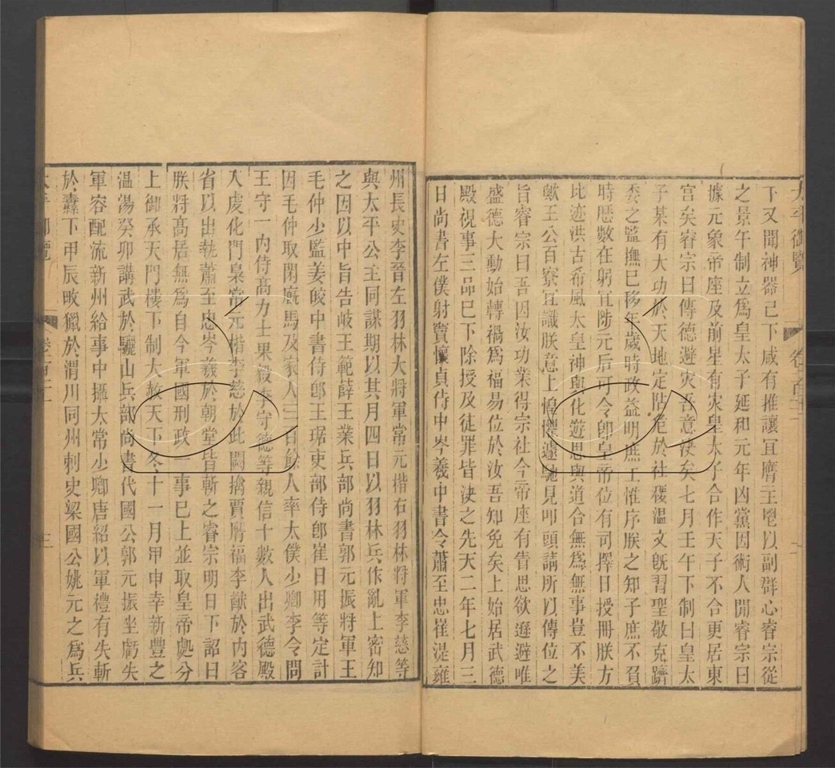 下又聞神器已下咸有推讓宜膺主鬯以副群心睿宗從
之景午制立爲皇太子延和元年凶黨因術人聞睿宗曰
據元象帝座及前星有災皇太子合作天子不合更居東
宮矣睿宗曰傳德避災吾意決矣七月壬午下制曰皇太
子某有大功於天地定阽危於社稷溫文旣習聖敬克躋
委之監撫已移年歲時政益明庶工惟序朕之知子庶不負
時曆數在躬宜陟元后可令卽皇帝位有司擇日授冊朕方
比迹洪古希風太皇神與化遊思與道合無爲無事豈不美
歟王公百寮宜識朕意上惶懼遽馳見叩頭請所以傳位之
旨睿宗曰吾因汝功業得宗社今帝座有眚思欲遜避唯
盛德大動始轉禍爲福易位於汝吾知免矣上始居武德
殿視事三品已下除授及徒罪皆決之先天二年七月三
日尚書左僕射竇懷貞侍中岑羲中書令蕭至忠崔湜雍
州長史李晉左羽林大將軍常元楷右羽林將軍李慈等
與太平公主同謀期以其月四日以羽林兵作亂上密知
之因以中旨告岐王範薛王業兵部尚書郭元振將軍王
毛仲少監姜皎中書侍郎王琚吏部侍郎崔日用等定計
因毛仲取閑廐馬及家人三百餘人率太僕少卿李令問
王守一內侍高力士果毅李守德等親信十數人出武德殿
入虔化門梟常元楷李慈於北闕擒賈膺福李猷於內客
省以出執蕭至忠岑羲於朝堂皆斬之睿宗明日下詔曰
朕將高居無爲自今軍國刑政一事已上並取皇帝處分
上御承天門樓下制大赦天下冬十一月甲申幸新豐之
溫湯癸卯講武於驪山兵部尚書代國公郭元振坐虧失
軍容配流新州給事中攝太常少卿唐紹以軍禮有失斬
於纛下甲辰畋獵於渭川同州刺史梁國公姚元之爲兵